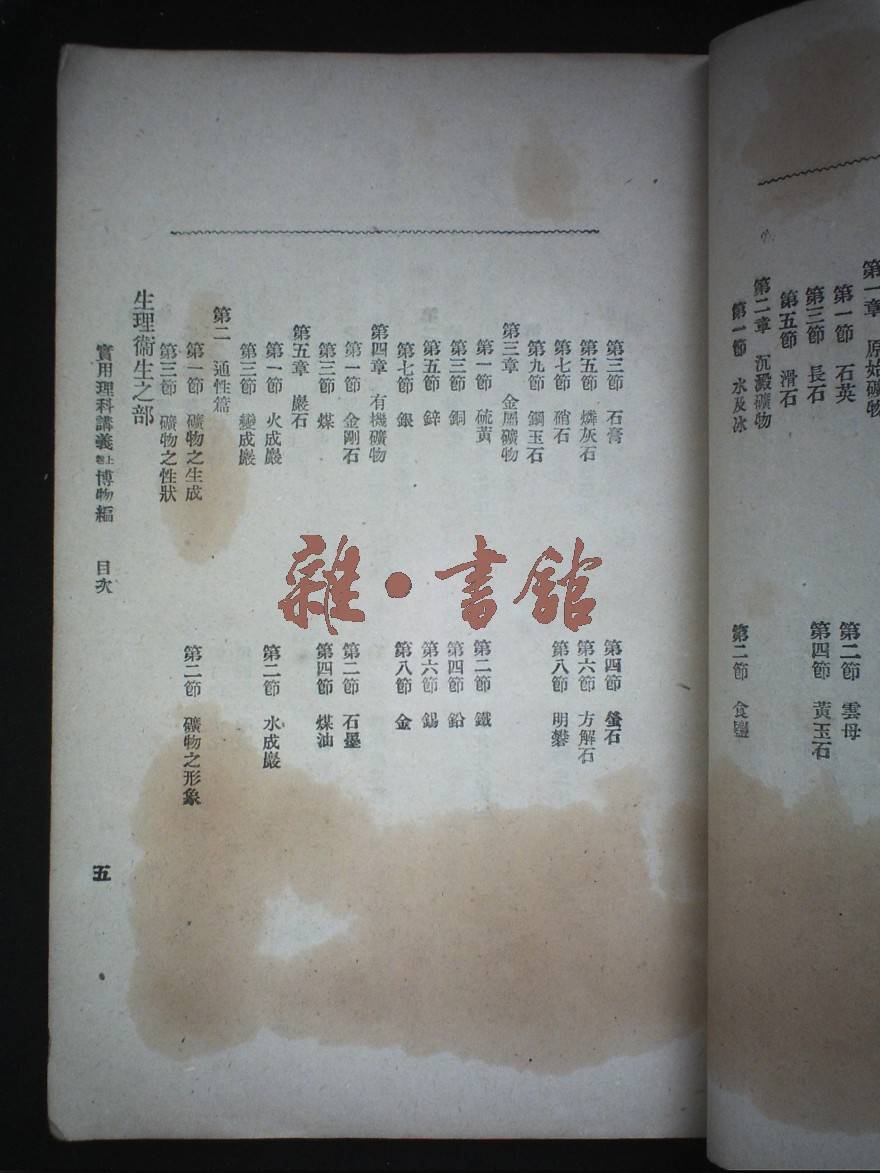 第一章 原始礦物
第一節 石英 第二節 雲母
第三節 長石 第四節 黃玉石
第五節 滑石
第二章 沉澱礦物
第一節 水及冰 第二節 食鹽
第三節 石膏 第四節 螢石
第五節 燐灰石 第六節 方解石
第七節 硝石 第八節 明礬
第九節 鋼玉石
第三章 金屬礦物
第一節 硫黃 第二節 鐵
第三節 銅 第四節 鉛
第五節 鋅 第六節 錫
第七節 銀 第八節 金
第四章 有機礦物
第一節 金剛石 第二節 石墨
第三節 煤 第四節 煤油
第五章 巖石
第一節 火成巖 第二節 水成巖
第三節 變成巖
第二 通性篇
第一節 礦物之生成 第二節 礦物之形象
第三節 礦物之性狀
生理衞生之部
實用理科講義 上卷 博物編 目次 五
雜·書館